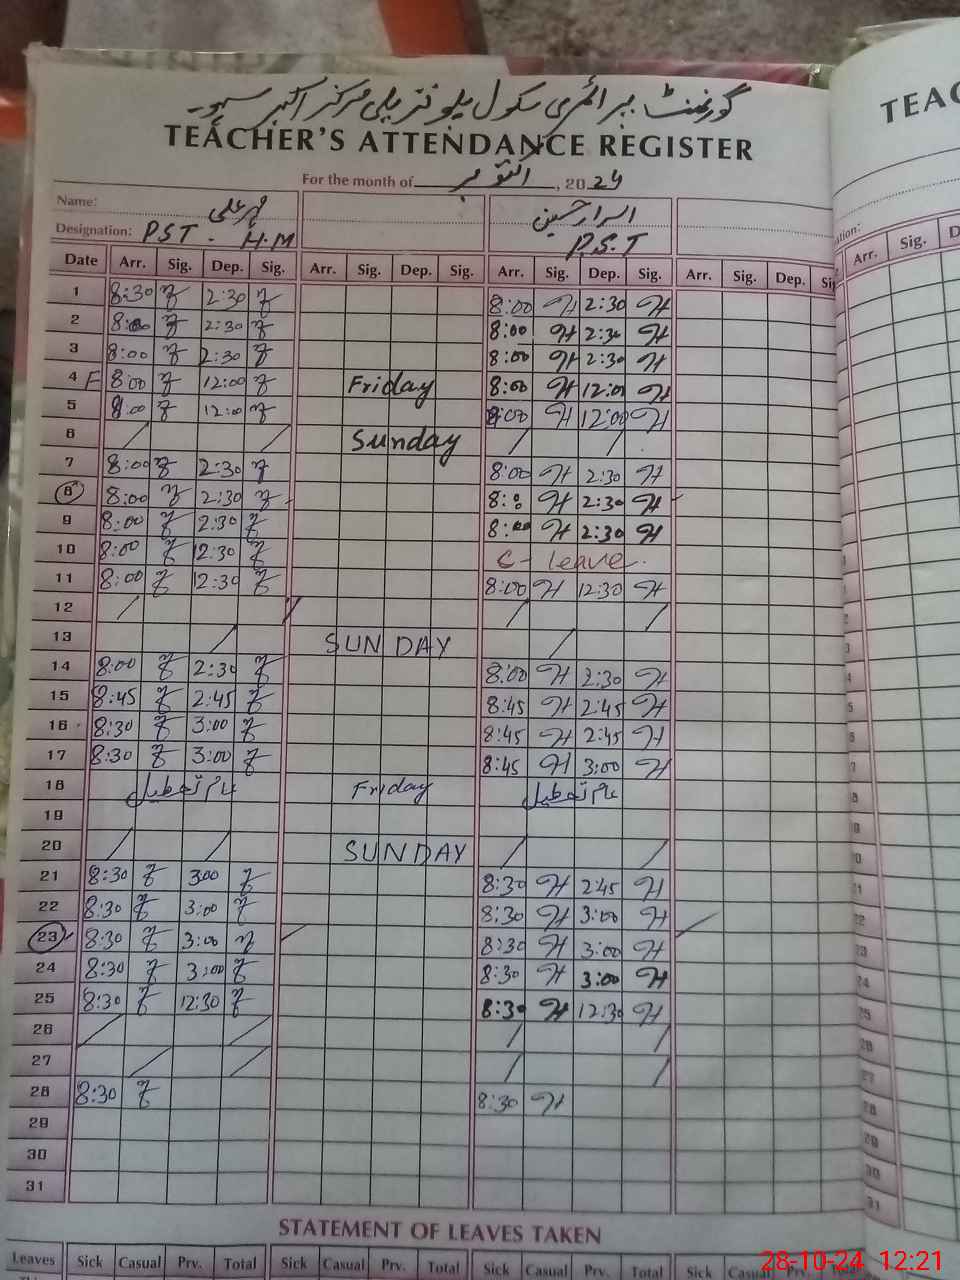 گورنمنٹ پرائمری سکول مرکز اکبر
TEACHER'S ATTENDANCE REGISTER
TEAC
For the month of اکتوبر , 2024
Name: مہر علی اسرار حسین
Designation: PST - H.M P.S.T
Date Arr. Sig. Dep. Sig. Arr. Sig. Dep. Sig. Arr. Sig. Dep. Sig. Arr. Sig. Dep. Arr. Sig.
1 8:30 2:30 8:00 2:30
2 8:00 2:30 8:00 2:30
3 8:00 2:30 8:00 2:30
4 F 8:00 12:00 Friday 8:00 12:00
5 8:00 12:00 8:00 12:00
6 Sunday
7 8:00 2:30 8:00 2:30
8 8:00 2:30 2:30
9 8:00 2:30 8:00 2:30
10 8:00 12:30 C- leave.
11 8:00 12:30 8:00 12:30
12
13 SUNDAY
14 8:00 2:30 8:00 2:30
15 8:45 2:45 8:45 2:45
16 8:30 3:00 8:45 2:45
17 8:30 3:00 8:45 3:00
18 عام تعطیل Friday عام تعطیل
19
20 SUNDAY
21 8:30 3:00 8:30 2:45
22 8:30 3:00 8:30 3:00
23 8:30 3:00 8:30 3:00
24 8:30 3:00 8:30 3:00
25 8:30 12:30 8:30 12:30
26
27
28 8:30 8:30
29
30
31
STATEMENT OF LEAVES TAKEN
Leaves Sick Casual Prv. Total Sick Casual Prv. Total Sick Casual Prv. Total Sick Casual
28-10-24 12:21